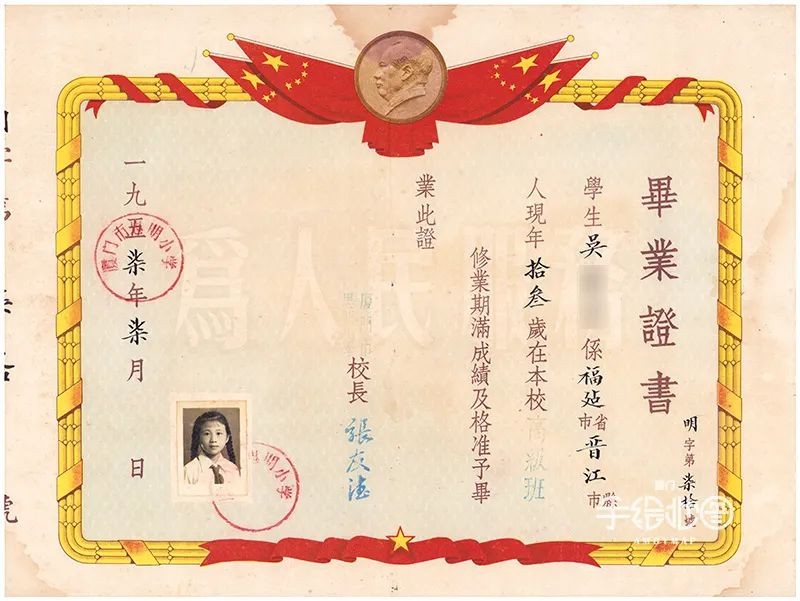 畢業證書
明字第柒拾號
學生吳 係福建省市晋江縣市
人現年拾叁歲在本校高級班
修業期滿成績及格准予畢
業此證
校長 張
一九五柒年柒月 日
厦门市思明小学
明小学
爲人民服務
厦门
手绘地图
AMOYMAP